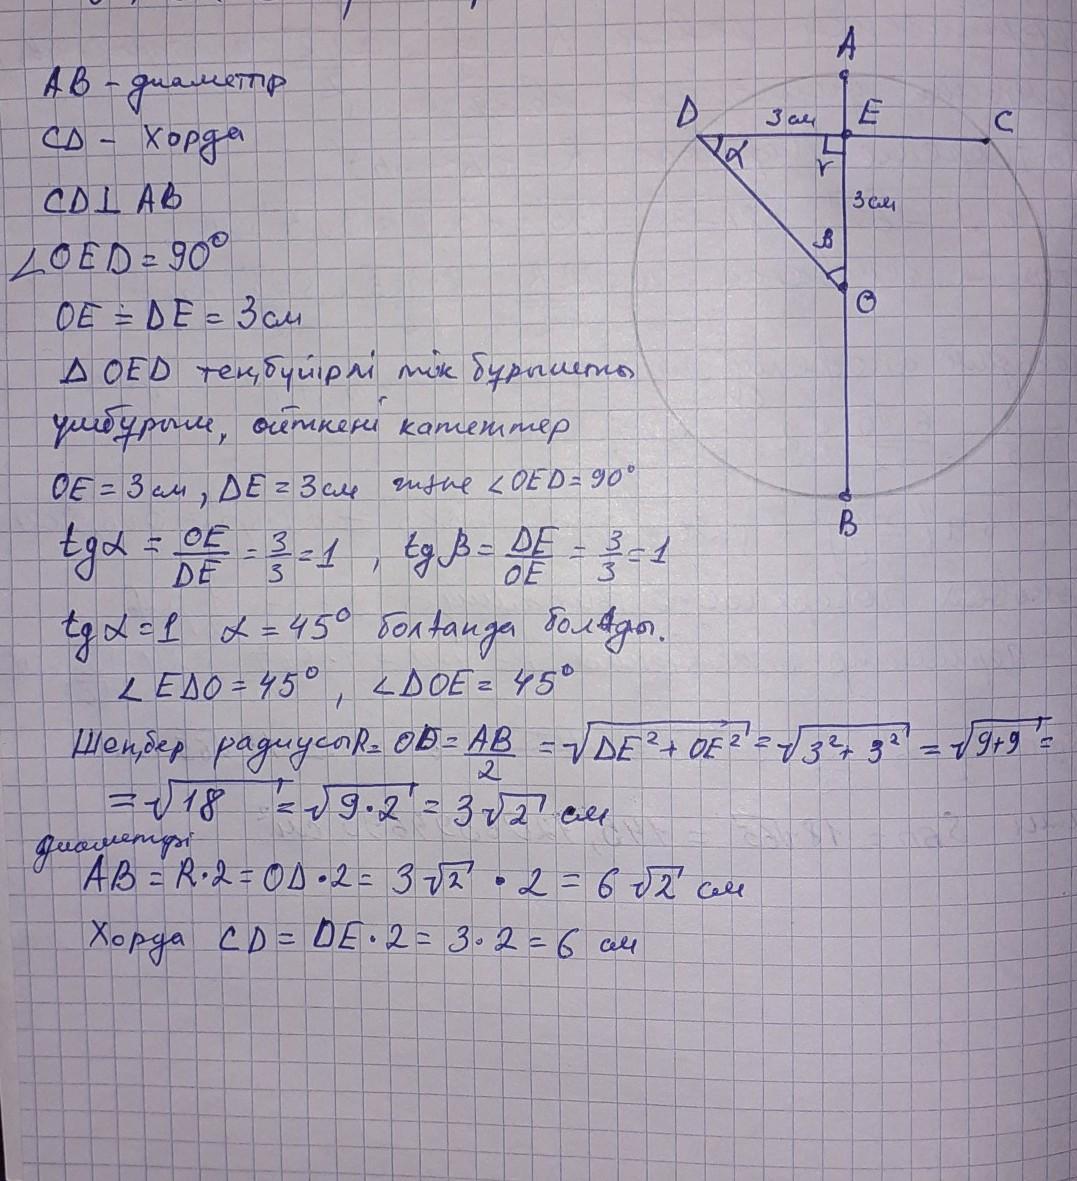 AB - диаметр
CD - Хорда
CD⊥AB
∠OED = 90°
OE = DE = 3 см
Δ OED теңбүйірлі тік бұрышты
үшбұрыш, өйткені катеттер
OE = 3 см, DE = 3 см және ∠OED = 90°
tgα = OE/DE = 3/3 = 1 , tgβ = DE/OE = 3/3 = 1
tgα = 1 α = 45° болғанда болады.
∠EDO = 45°, ∠DOE = 45°
Шеңбер радиусы R = OD = AB/2 = √DE² + OE² = √3² + 3² = √9+9 =
= √18 = √9·2 = 3√2 см
диаметрі
AB = R·2 = OD·2 = 3√2 · 2 = 6√2 см
Хорда CD = DE·2 = 3·2 = 6 см
A
D
3 см
E
C
α
r
3 см
β
O
B